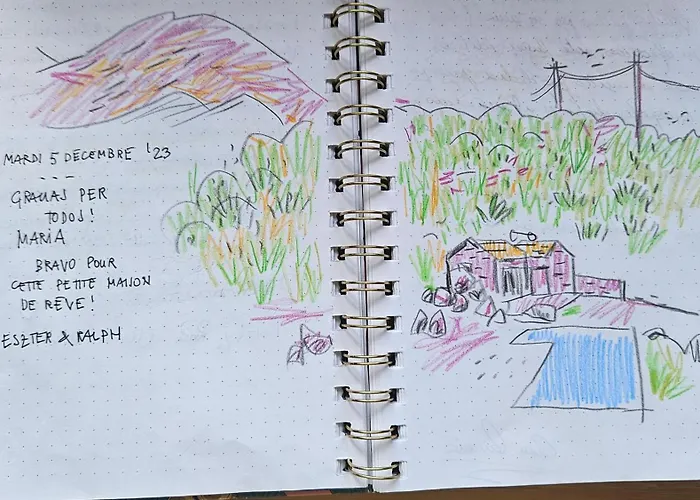 MARDI 5 DECEMBRE '23
GRACIAS PER
TODOS!
MARIA
BRAVO POUR
CETTE PETITE MAISON
DE RÊVE!
ESZTER & RALPH